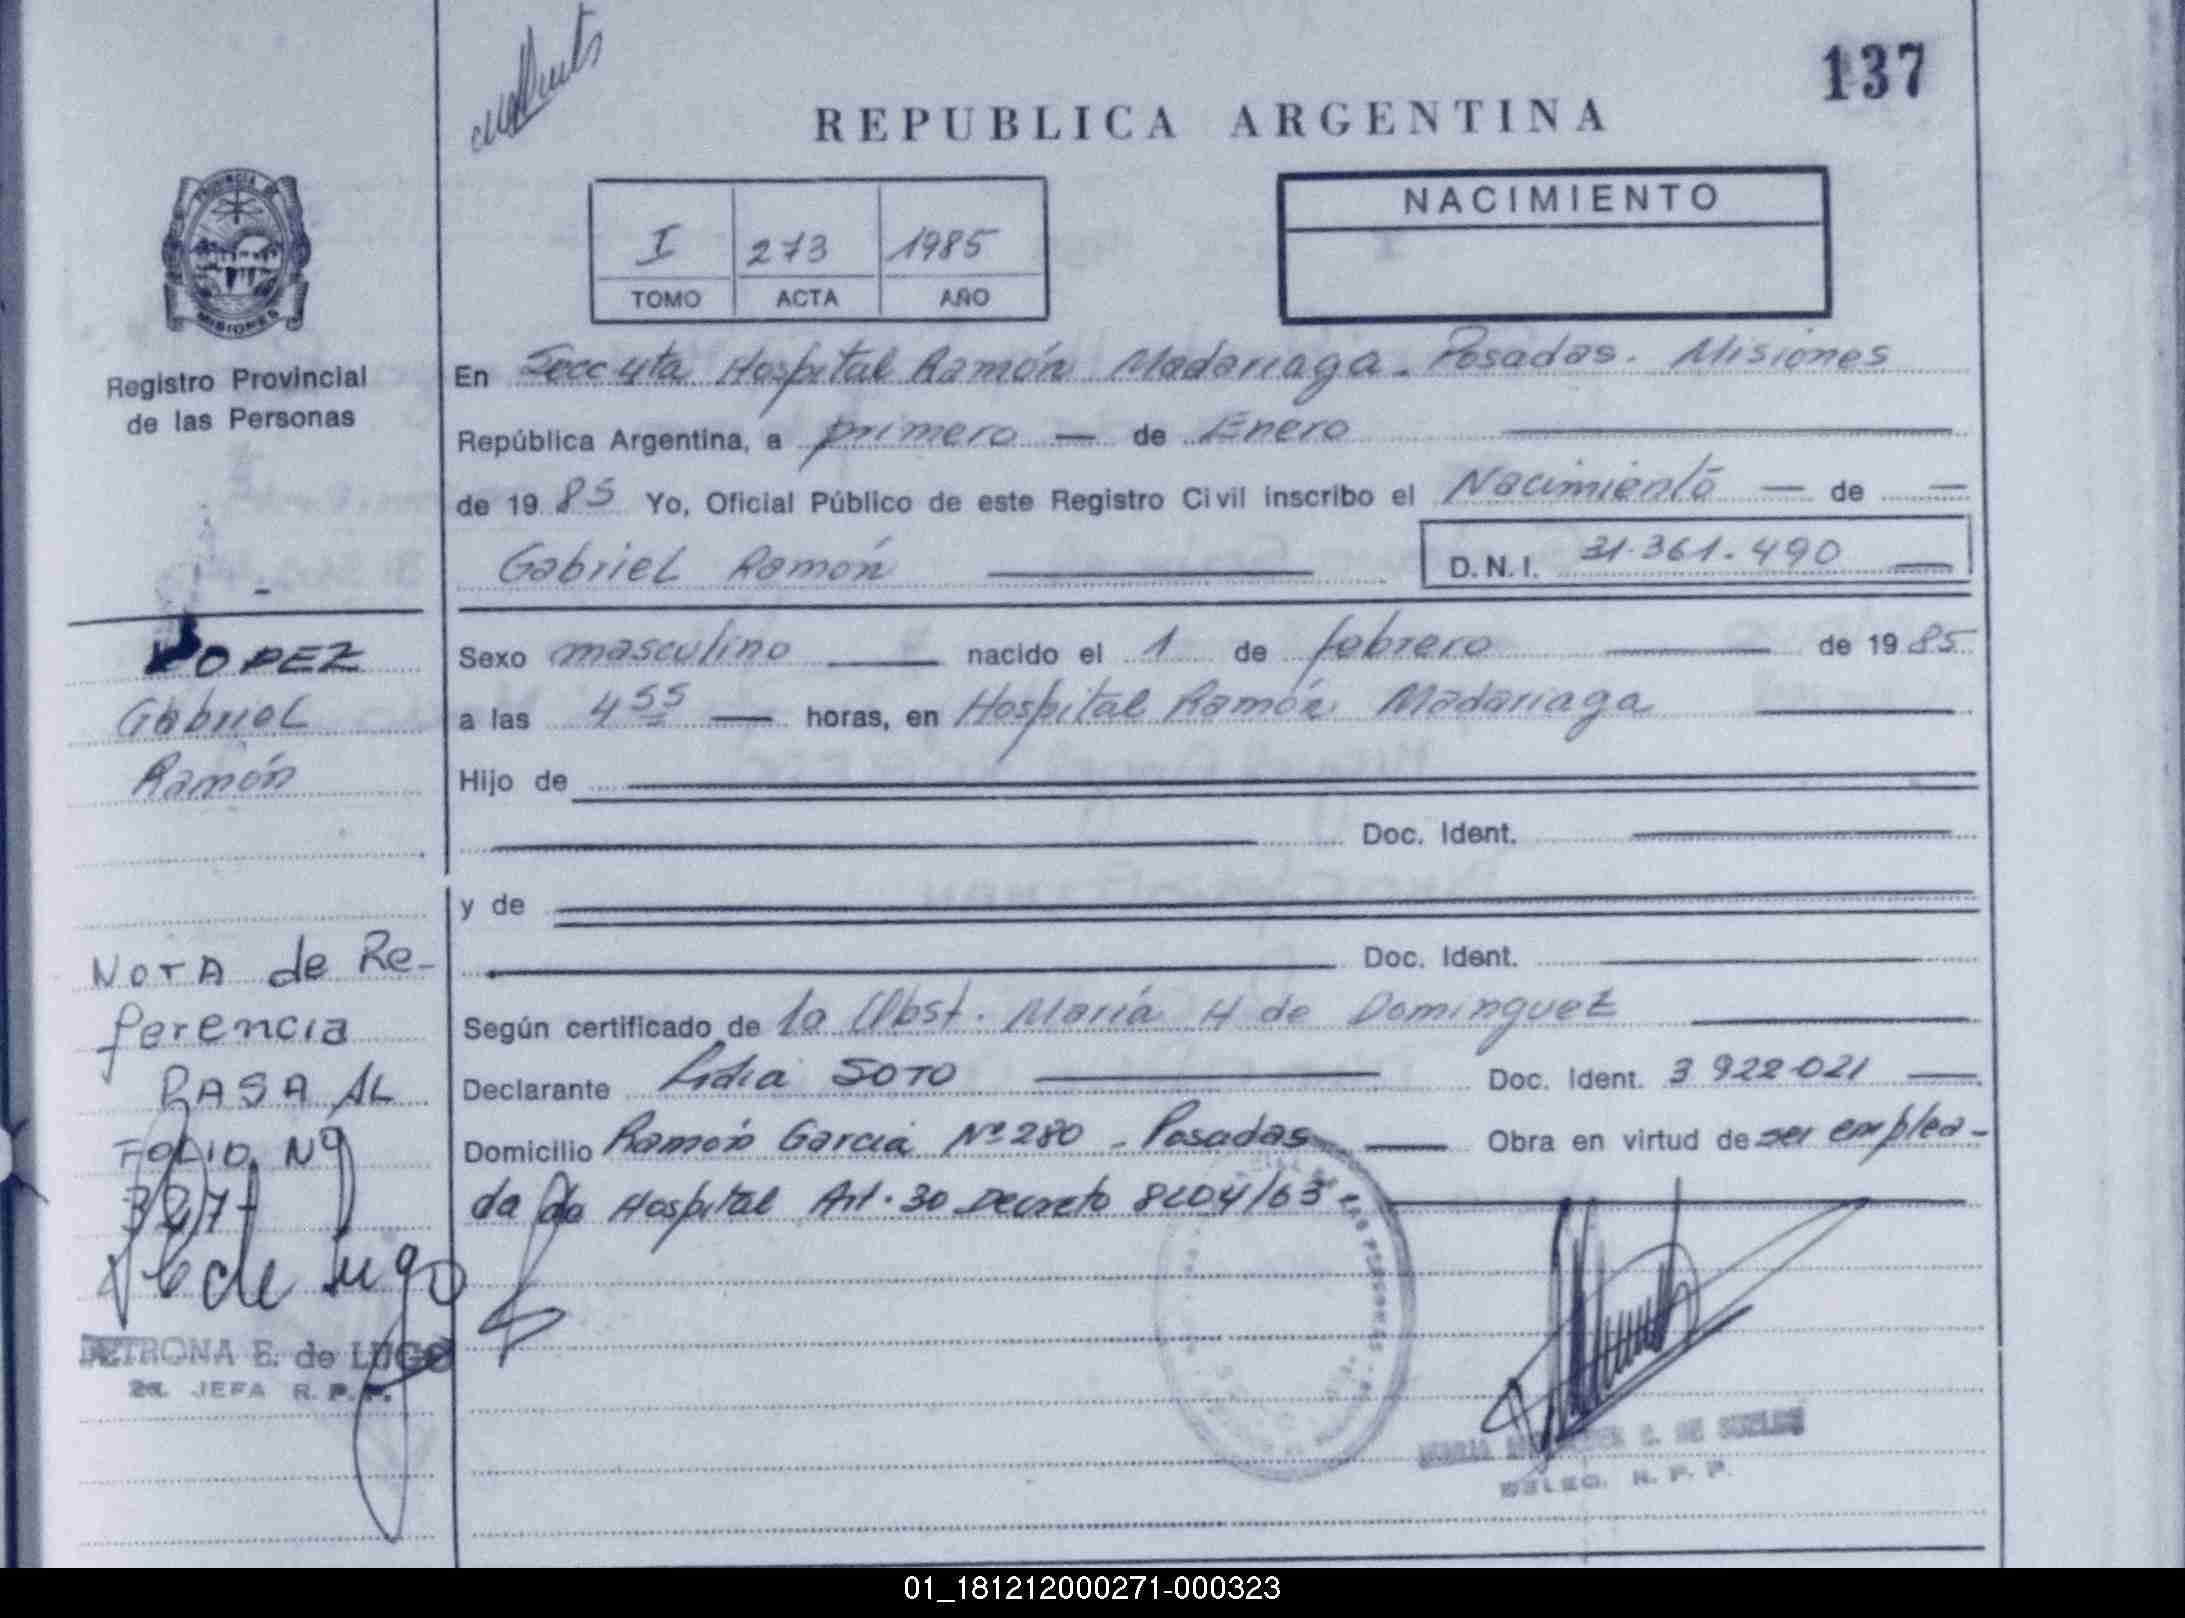 137
REPUBLICA ARGENTINA
NACIMIENTO
I 273 1985
TOMO ACTA AÑO
PROVINCIA DE
MISIONES
Registro Provincial
de las Personas
En Secc 4ta Hospital Ramón Madariaga. Posadas. Misiones
República Argentina, a primero — de Enero
de 19 85 Yo, Oficial Público de este Registro Civil inscribo el Nacimiento — de —
Gabriel Ramón
D.N.I. 31.361.490
LOPEZ
Gabriel
Ramón
Sexo masculino nacido el 1 de febrero de 19 85
a las 4 55 — horas, en Hospital Ramón Madariaga
Hijo de
Doc. Ident.
y de
Doc. Ident.
Según certificado de la Obst. María H de Dominguez
Declarante Lidia SOTO Doc. Ident. 3 922 021
Domicilio Ramón Garcia Nº 280 - Posadas — Obra en virtud de ser emplea-
da do Hospital Art. 30 Decreto 8204/63
NOTA de Re-
ferencia
PASA AL
FOLIO Nº
327
de Lugo
PETRONA E. de LUGO
JEFA R. P. P.
DELEG. R. P. P.
01_181212000271-000323